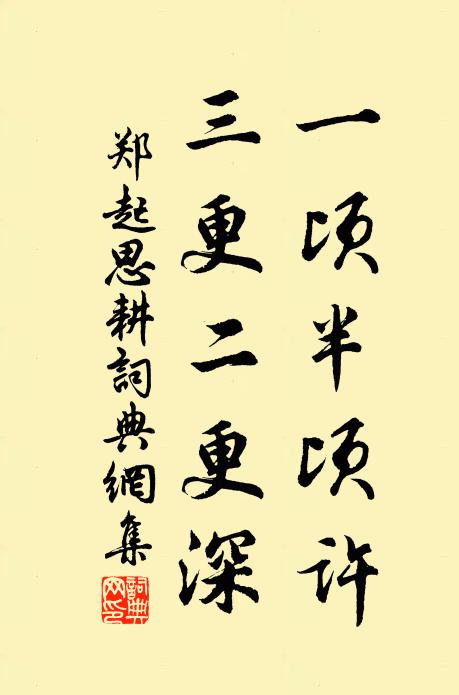 一頃半頃许
三更二更深
郑起思耕詞典網集
詞典网印